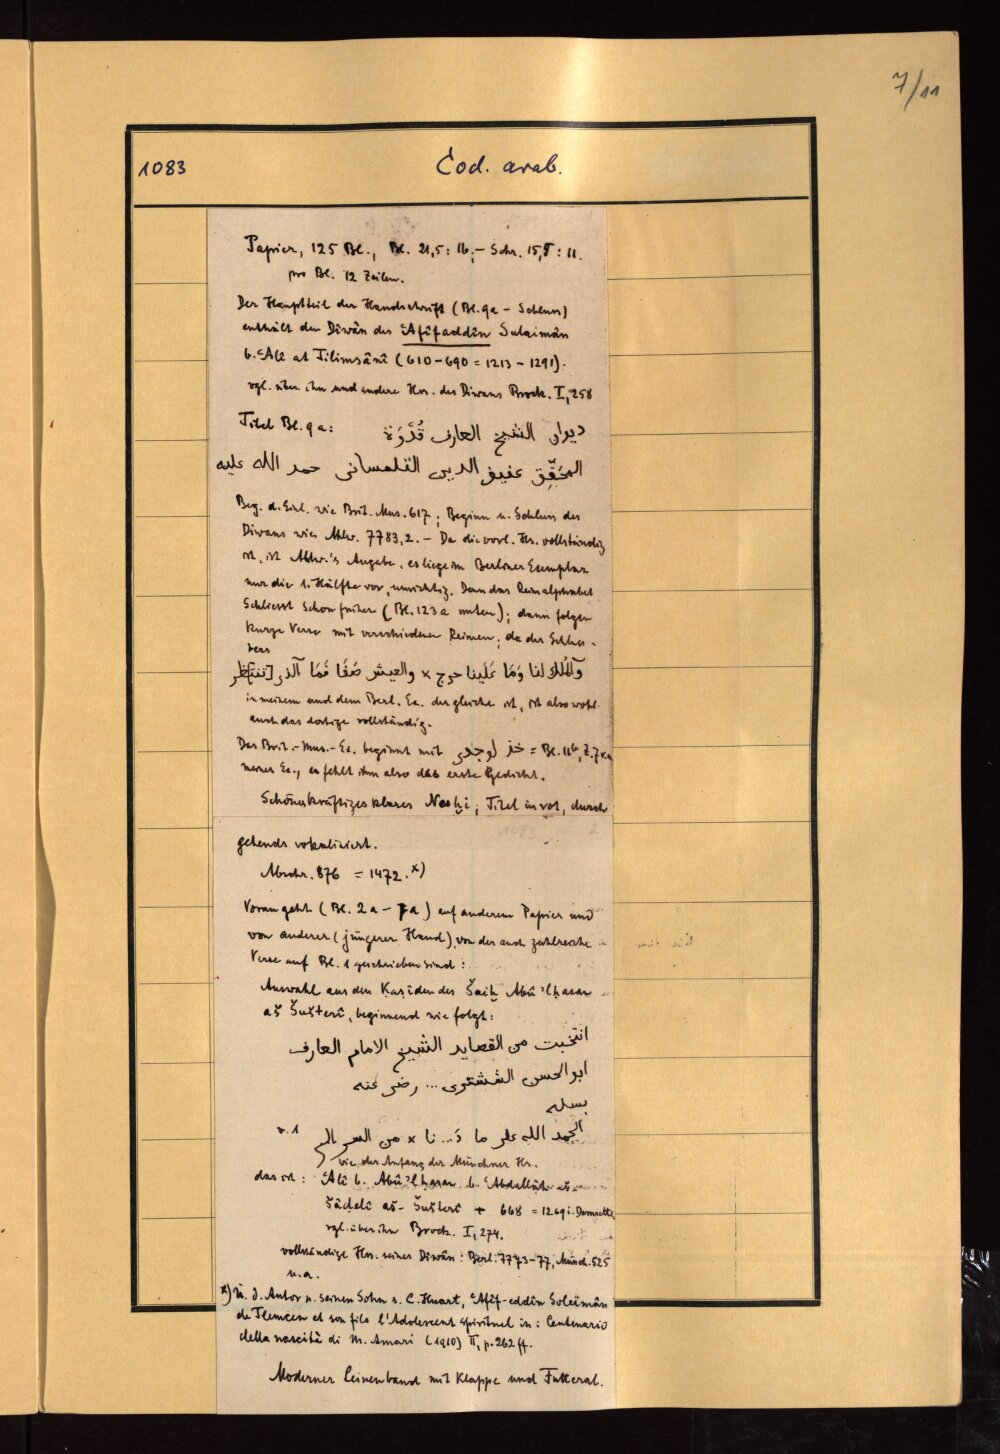 7/11
1083
Cod. arab.
Papier, 125 Bl., Bl. 21,5 : 16,– Schr. 15,5 : 11.
pro Bl. 12 Zeilen.
Der Hauptteil der Handschrift (Bl. 9a – Schluss)
enthält den Dîwân des ʿAfîfaddîn Sulaimân
b. ʿAlî at Tilimsânî (610–690 = 1213–1291).
vgl. über ihn und andere Hss. des Diwans Brock. I, 258
Titel Bl. 9a: ديوان الشيخ العارف قُدْوَة
المحَقِّق عفيف الدين التلمسانى حمد الله عليه
Beg. d. Einl. wie Brit. Mus. 617; Beginn u. Schluss des
Diwans wie Ahlw. 7783,2. – Da die vorl. Hs. vollständig
ist, ist Ahlw.'s Angabe, es liege im Berliner Exemplar
nur die 1. Hälfte vor, unrichtig. Denn das Reimalphabet
schliesst schon früher (Bl. 123a unten); dann folgen
kurze Verse mit verschiedenen Reimen; da der Schluss-
vers
وَآلمُلك لنا وَمَا عَلَينا حرج × والعيش صَفَا فَمَا آلذى [ننت]ظر
in meinem und dem Berl. Ex. der gleiche ist, ist also wohl
auch das dortige vollständig.
Das Brit.-Mus.-Ex. beginnt mit خذ لوجدى = Bl. 11b, Z. 7 v.u
meines Ex., es fehlt ihm also das erste Gedicht.
Schönes kräftiges klares Nesḫi; Titel in rot, durch
1083 2
gehends vokalisiert.
Abschr. 876 = 1472. x)
Voran geht (Bl. 2a – 7a) auf anderem Papier und
von anderer (jüngerer Hand), von der auch zahlreiche
Verse auf Bl. 1 geschrieben sind:
Auswahl aus den Kaṣîden des Šaiḫ Abû 'lḥasan
aš Šušterî, beginnend wie folgt:
انتخبت من القصايد الشيخ الامام العارف
ابو الحسن الششترى ... رضى عنه
بسله
الحمد الله على ما دَ... نا × من السر
wie der Anfang der Münchner Hs.
das ist: ʿAlî b. Abû 'lḥasan b. ʿAbdallâh aš
šâḏelî aš-Šušterî + 668 = 1269 i. Damiette
vgl. über ihn Brock. I, 274.
vollständige Hss. seines Dîwân: Berl. 7773–77, Münch. 525
u. a.
x) Ü. d. Autor u. seinen Sohn s. C. Huart, ʿAfîf-eddîn Soleïmân
de Tlemcen et son fils l'Adolescent spirituel in: Centenario
della nascita di M. Amari (1910) II, p. 262 ff.
Moderner Leinenband mit Klappe und Futteral.